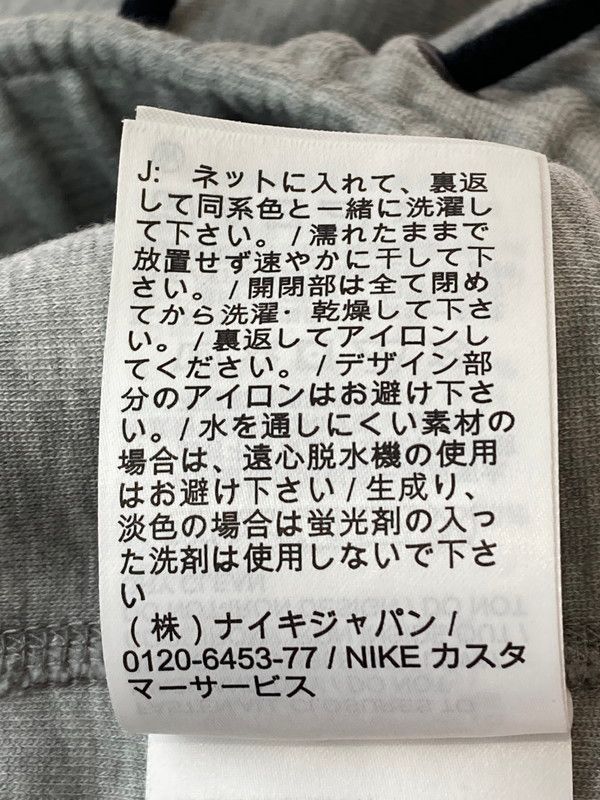 J:　ネットに入れて、裏返
して同系色と一緒に洗濯し
て下さい。 / 濡れたままで
放置せず速やかに干して下
さい。 / 開閉部は全て閉め
てから洗濯・ 乾燥して下さ
い。 / 裏返してアイロンし
てください。 / デザイン部
分のアイロンはお避け下さ
い。/ 水を通しにくい素材の
場合は、遠心脱水機の使用
はお避け下さい / 生成り、
淡色の場合は蛍光剤の入っ
た洗剤は使用しないで下さ
い
( 株 ) ナイキジャパン /
0120-6453-77 / NIKE カスタ
マーサービス